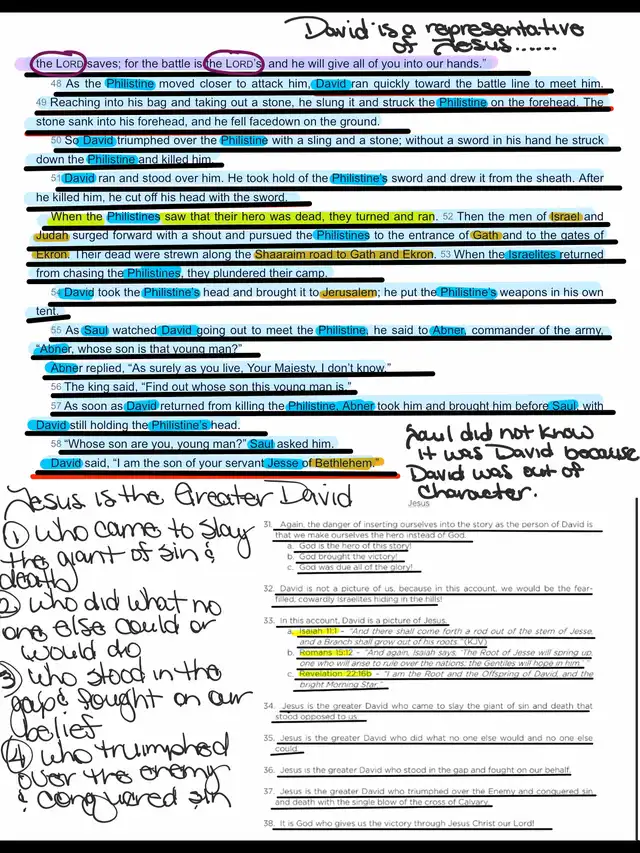 David is a representative
of Jesus......
the LORD saves; for the battle is the LORD's, and he will give all of you into our hands.”
48 As the Philistine moved closer to attack him, David ran quickly toward the battle line to meet him.
49 Reaching into his bag and taking out a stone, he slung it and struck the Philistine on the forehead. The
stone sank into his forehead, and he fell facedown on the ground.
50 So David triumphed over the Philistine with a sling and a stone; without a sword in his hand he struck
down the Philistine and killed him.
51 David ran and stood over him. He took hold of the Philistine's sword and drew it from the sheath. After
he killed him, he cut off his head with the sword.
When the Philistines saw that their hero was dead, they turned and ran. 52 Then the men of Israel and
Judah surged forward with a shout and pursued the Philistines to the entrance of Gath and to the gates of
Ekron. Their dead were strewn along the Shaaraim road to Gath and Ekron. 53 When the Israelites returned
from chasing the Philistines, they plundered their camp.
54 David took the Philistine's head and brought it to Jerusalem; he put the Philistine's weapons in his own
tent.
55 As Saul watched David going out to meet the Philistine, he said to Abner, commander of the army,
“Abner, whose son is that young man?”
Abner replied, “As surely as you live, Your Majesty, I don't know.”
56 The king said, “Find out whose son this young man is.”
57 As soon as David returned from killing the Philistine, Abner took him and brought him before Saul, with
David still holding the Philistine's head.
58 “Whose son are you, young man?” Saul asked him.
David said, “I am the son of your servant Jesse of Bethlehem.”
Saul did not know
it was David because
David was out of
character.
Jesus is the Greater David
1 who came to slay
the giant of sin &
death
2 who did what no
one else could or
would do
3 who stood in the
gap & fought on our
belief
4 who truimphed
over the enemy
& conquered sin
Jesus
31. Again, the danger of inserting ourselves into the story as the person of David is
that we make ourselves the hero instead of God.
a. God is the hero of this story!
b. God brought the victory!
c. God was due all of the glory!
32. David is not a picture of us, because in this account, we would be the fear-
filled, cowardly Israelites hiding in the hills!
33. In this account, David is a picture of Jesus.
a. Isaiah 11:1 - “And there shall come forth a rod out of the stem of Jesse,
and a Branch shall grow out of his roots.” (KJV)
b. Romans 15:12 - “And again, Isaiah says, 'The Root of Jesse will spring up,
one who will arise to rule over the nations; the Gentiles will hope in him.”
c. Revelation 22:16b - “I am the Root and the Offspring of David, and the
bright Morning Star.”
34. Jesus is the greater David who came to slay the giant of sin and death that
stood opposed to us.
35. Jesus is the greater David who did what no one else would and no one else
could.
36. Jesus is the greater David who stood in the gap and fought on our behalf.
37. Jesus is the greater David who triumphed over the Enemy and conquered sin
and death with the single blow of the cross of Calvary.
38. It is God who gives us the victory through Jesus Christ our Lord!